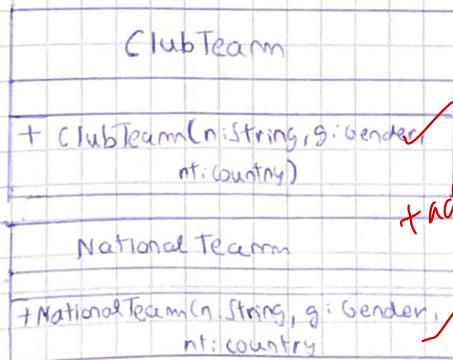 ClubTeam
+ ClubTeam(n:String, g:Gender,
nt:country)
+ad
National Team
+NationalTeam(n:String, g:Gender,
nt:country